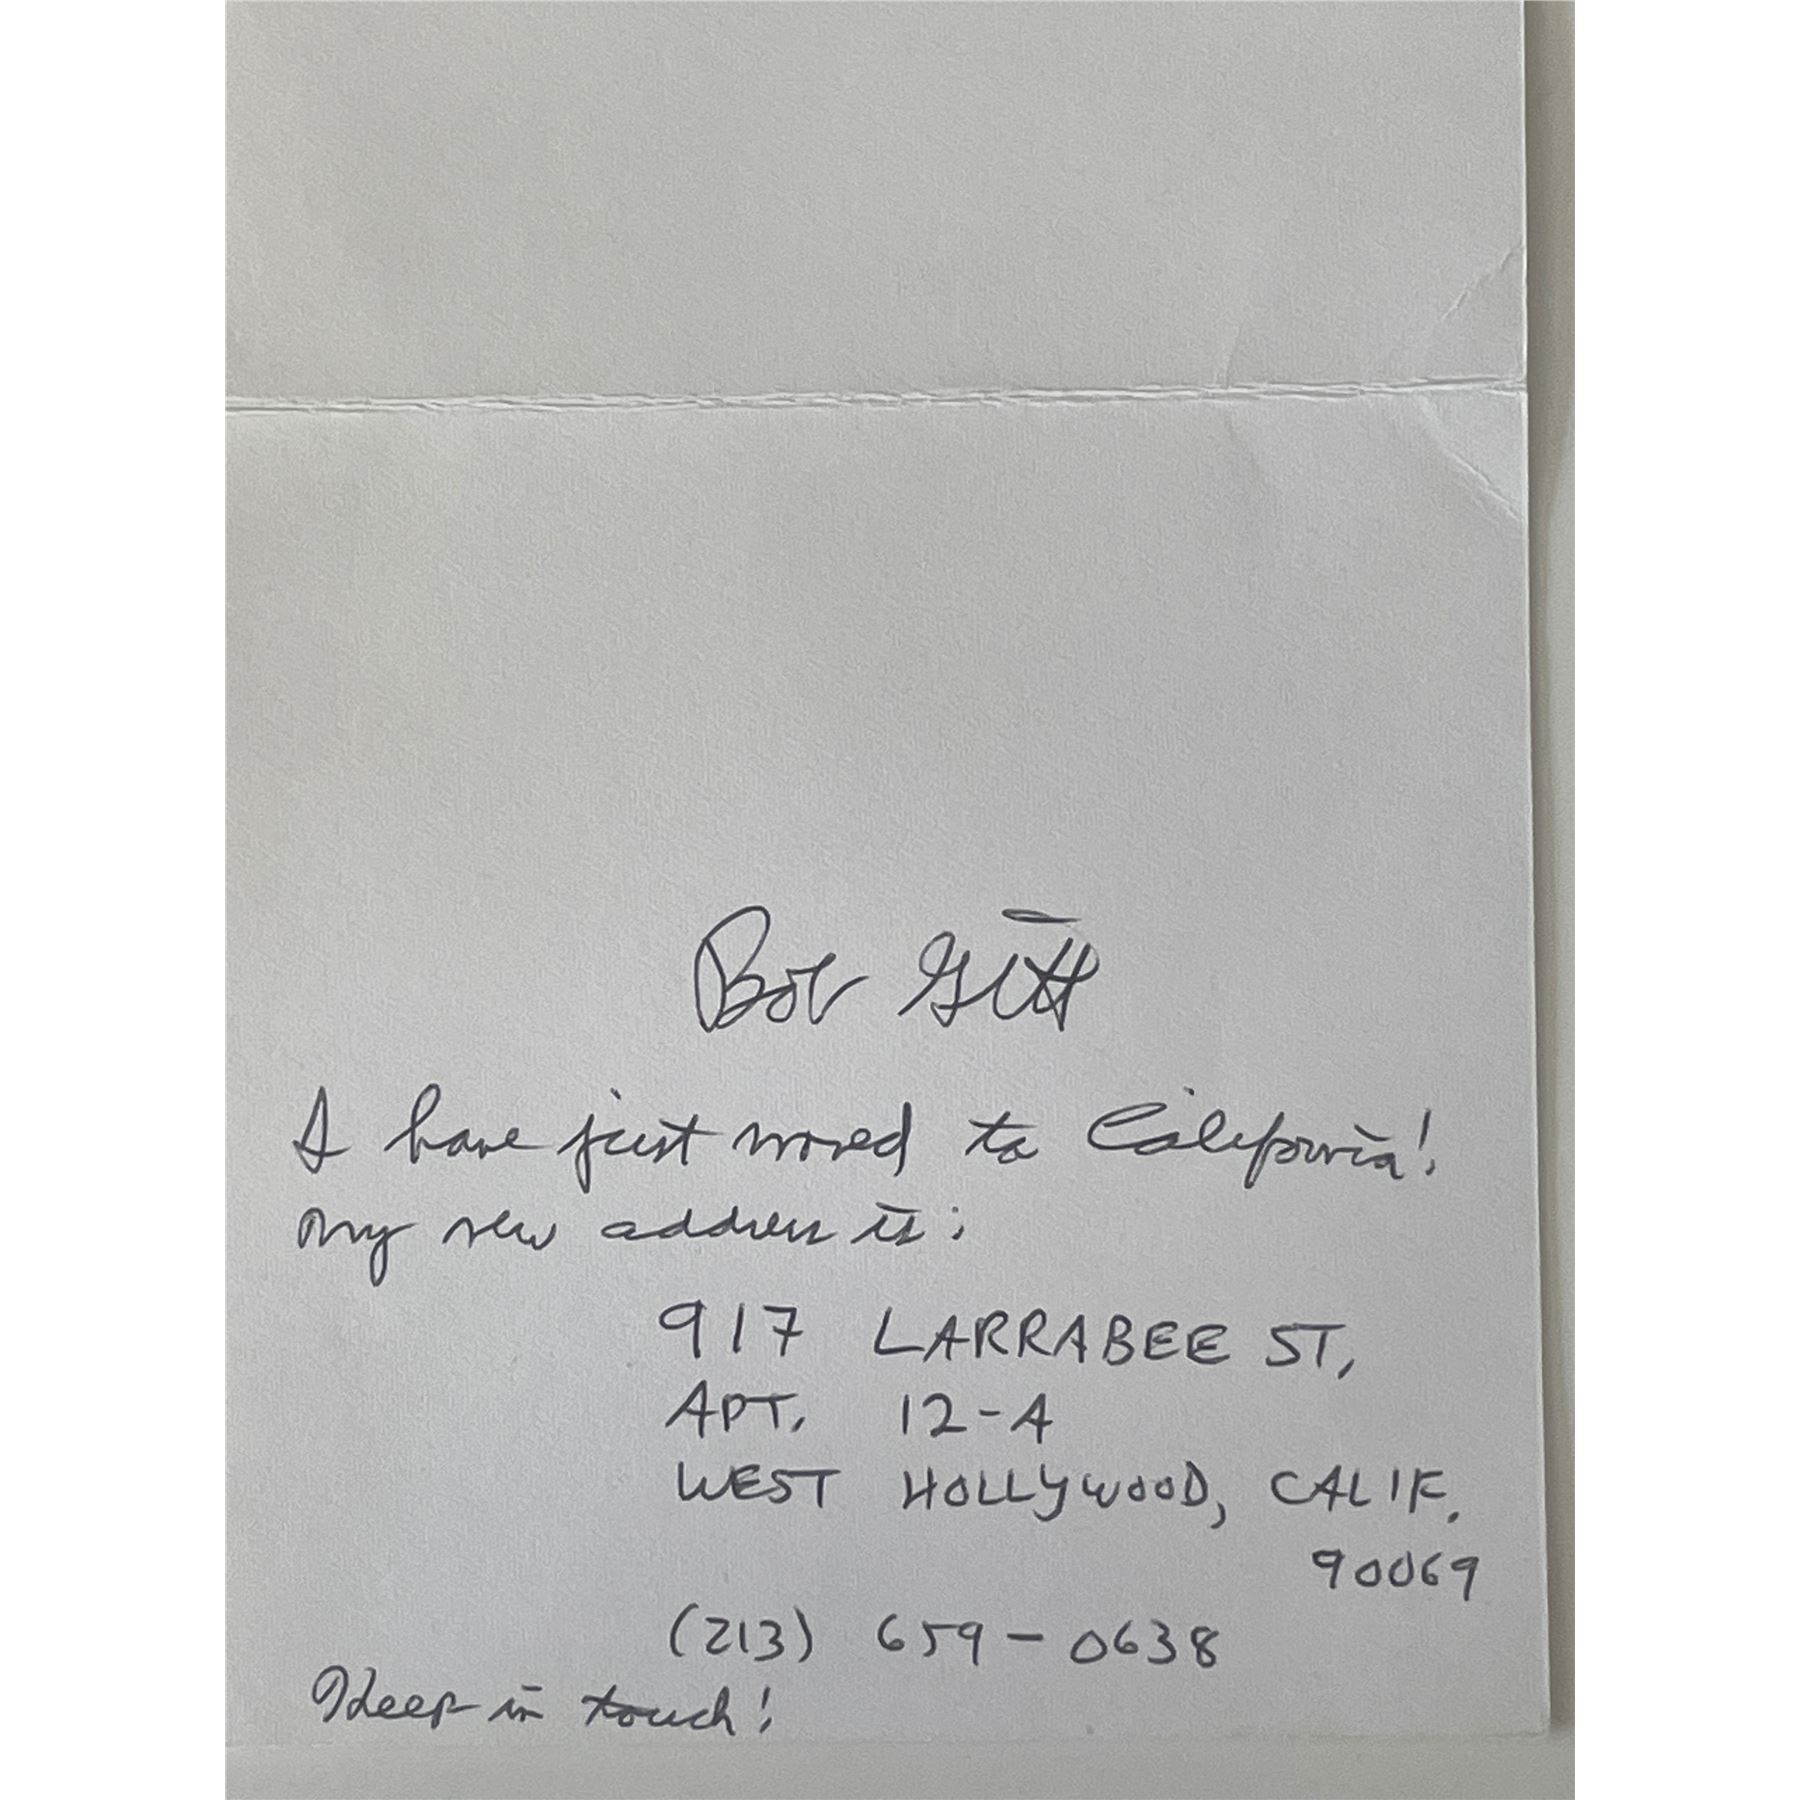 Bob Gitt
I have just moved to California!
My new address is:
917 LARRABEE ST,
APT. 12-A
WEST HOLLYWOOD, CALIF.
90069
(213) 659-0638
Keep in touch!